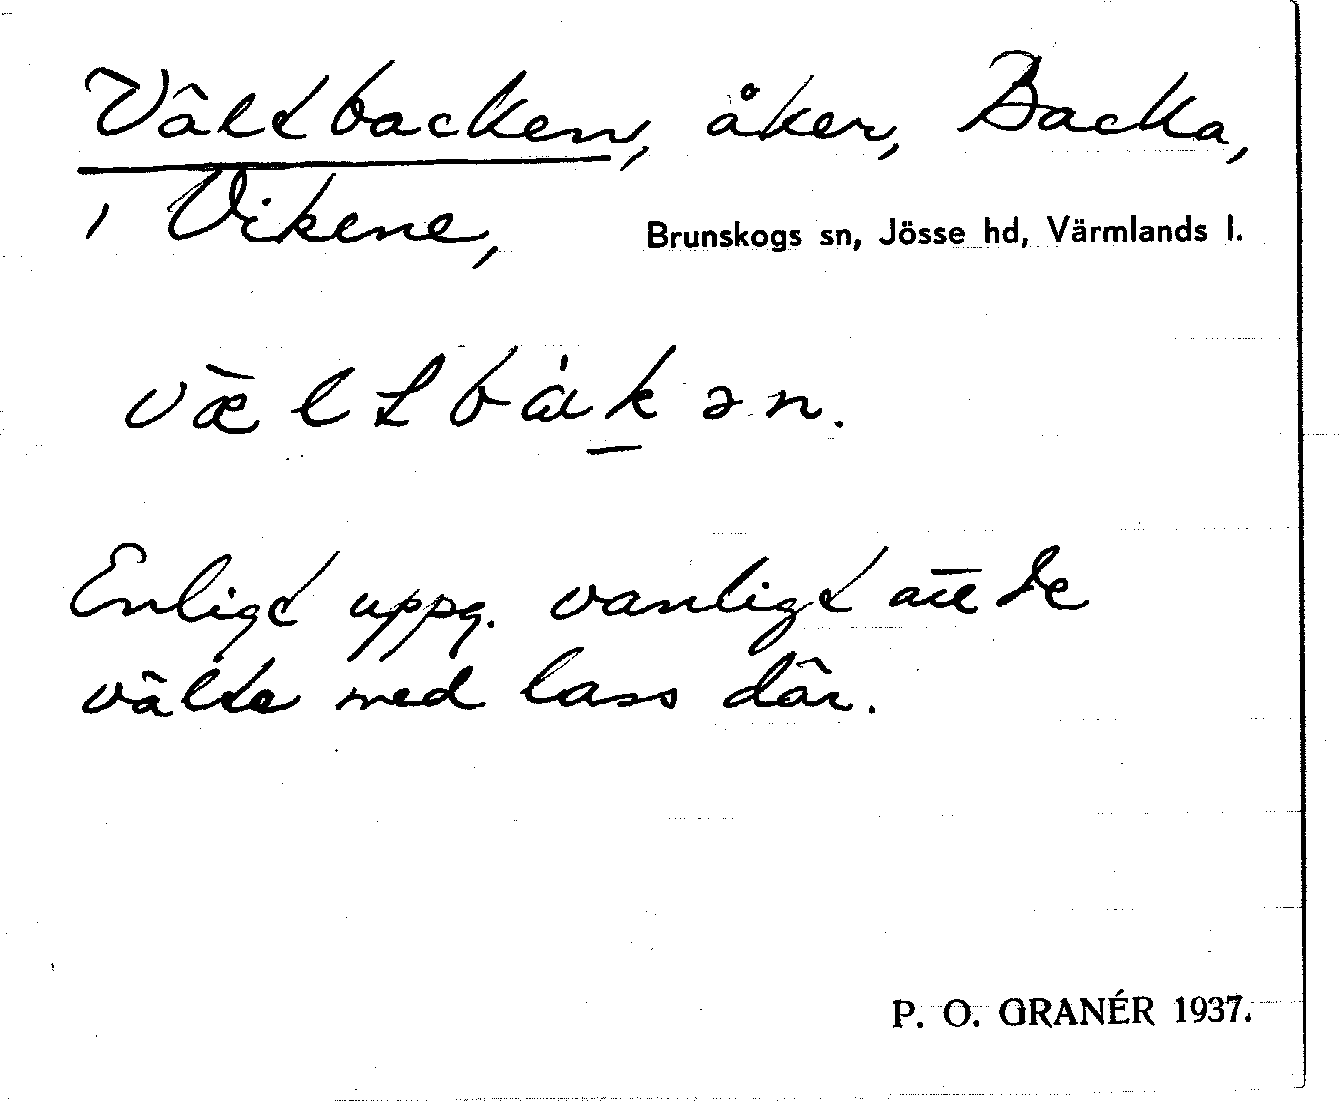 Vältbacken, åker, Backa,
i Vikene, Brunskogs sn, Jösse hd, Värmlands l.
væ̀ltbák̲ən.
Enligt uppg. vanligt att de
välte med lass där.
P. O. GRANÉR 1937.